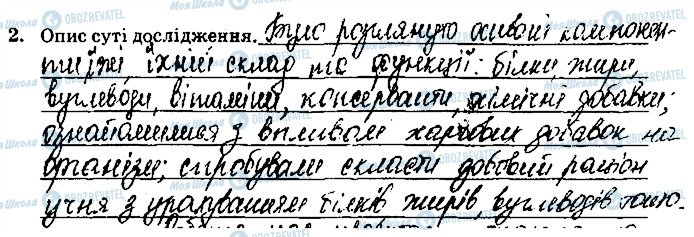 2. Опис суті дослідження. Було розглянуто основні компонен-
ти їжі, їхній склад та функції: білки, жири,
вуглеводи, вітаміни, консерванти, хімічні добавки;
ознайомилися з впливом харчових добавок на
організм; спробували скласти добовий раціон
учня з урахуванням білків жирів вуглеводів тощо.